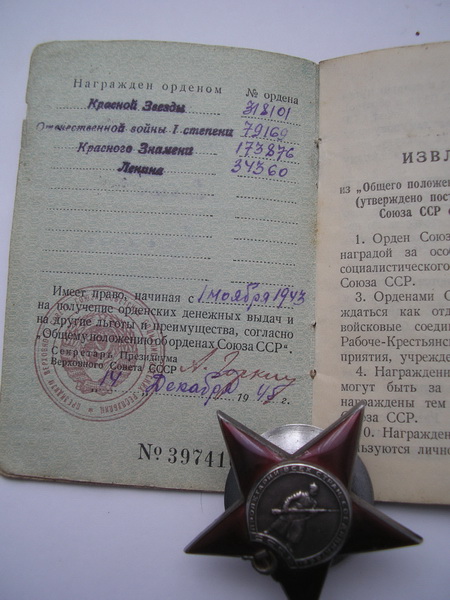 Награжден орденом № ордена
Красной Звезды 318101
Отечественной войны I степени 79169
Красного Знамени 173876
Ленина 34360
Имеет право, начиная с 1 ноября 1943
на получение орденских денежных выдач и
на другие льготы и преимущества, согласно
„Общему положению об орденах Союза ССР“.
Секретарь Президиума
Верховного Совета СССР А. Горкин
„14“ Декабря 1945 г.
№ 39741
ИЗВЛ
из „Общего положен
(утверждено пост
Союза ССР
1. Орден Союз
наградой за особ
социалистического
Союза ССР.
3. Орденами С
ждаться как отд
войсковые соеди
Рабоче-Крестьянс
приятия, учрежде
4. Награжденн
могут быть за
награждены тем
Союза ССР.
0. Награжден
льзуются лично